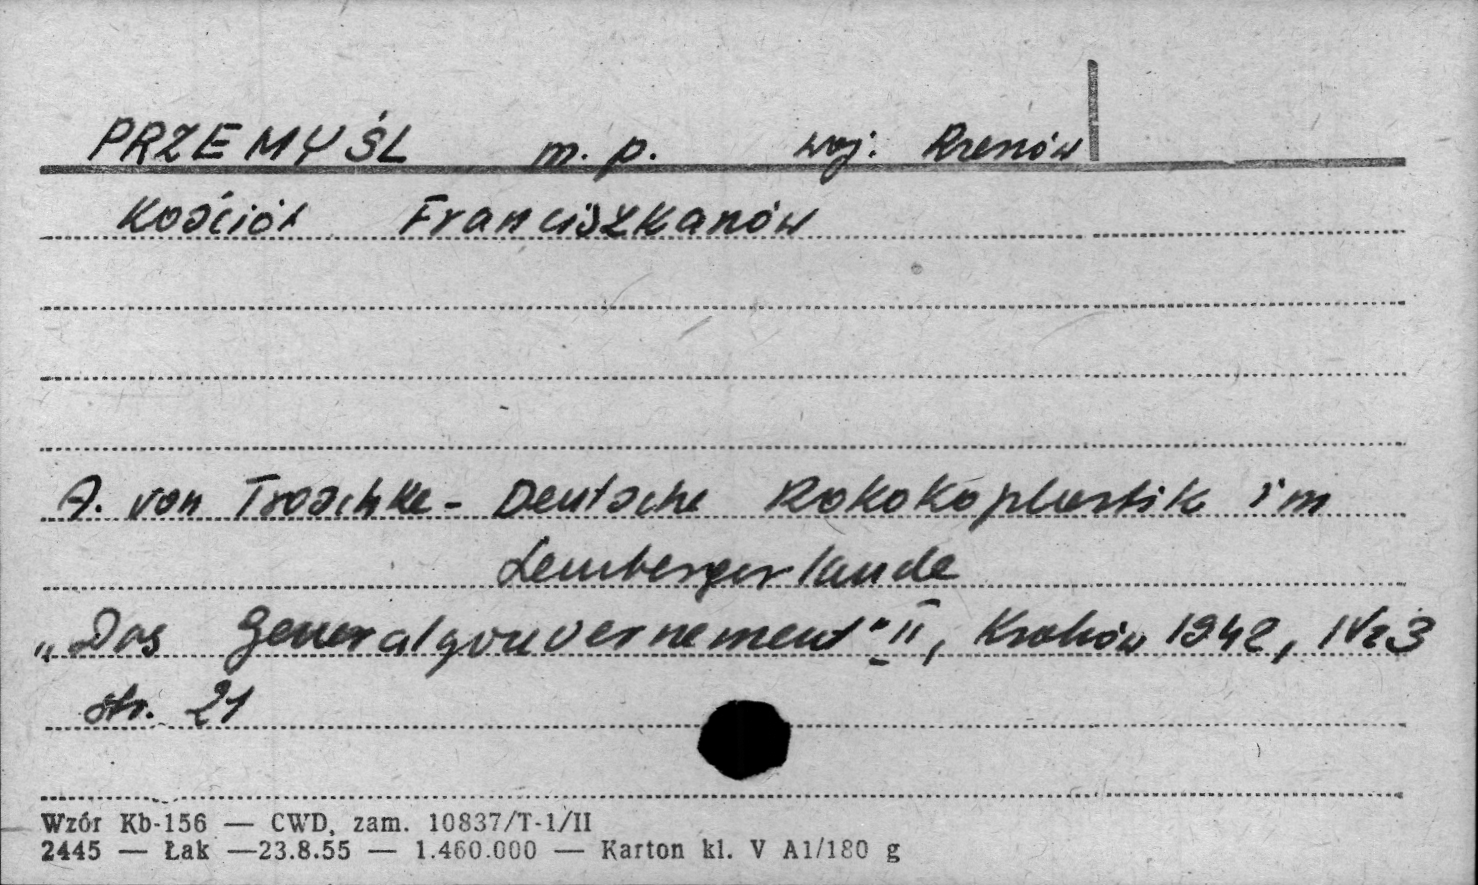 PRZEMYŚL m. p. woj. Rzeszów
Kościół Franciszkanów
A. von Troschke - Deutsche Rokokoplastik im
Lembergerlande
„Das Generalgouvernement" II, Kraków 1942, Nr 3
str. 21
Wzór Kb-156 — CWD, zam. 10837/T-1/II
2445 — Łak —23.8.55 — 1.460.000 — Karton kl. V A1/180 g